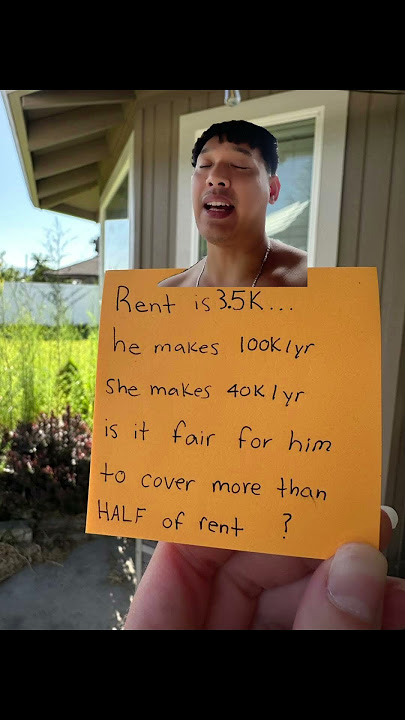 Rent is 3.5K...
he makes 100K/yr
She makes 40K/yr
is it fair for him
to cover more than
HALF of rent ?